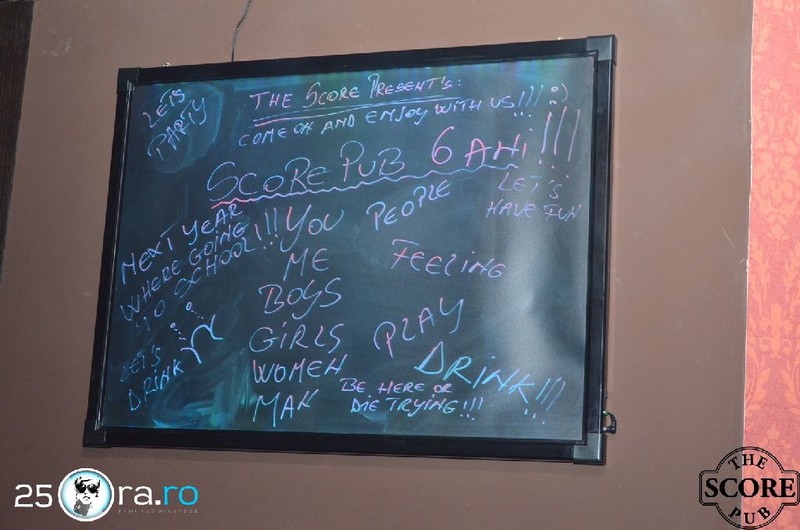 LET'S
PARTY
THE SCORE PRESENT'S:
COME ON AND ENJOY WITH US!!! :)
SCORE PUB 6 ANI!!!
LET'S
HAVE FUN
NEXT YEAR
WHERE GOING
TO SCHOOL!!!
YOU PEOPLE
ME FEELING
BOYS
GIRLS PLAY
WOMEN DRINK!!!
MAN
BE HERE OR
DIE TRYING!!!
LET'S
DRINK
25 ra.ro
THE
SCORE
PUB